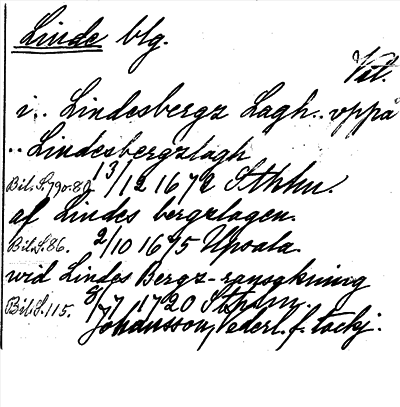 Linde blg.
Vtl.
i.. Lindesbergz Lagh.. vppå
..Lindesbergzlagh
Bil. S. 790.80 13/12 1672 Sthlm.
af Lindes bergzlagen.
Bil. S. 86. 2/10 1675 Upsala.
wid Lindes Bergz-ransakning
Bil. S. 115. 8/7 1720 Sthlm.
Johansson, Nederl. f. tackj.